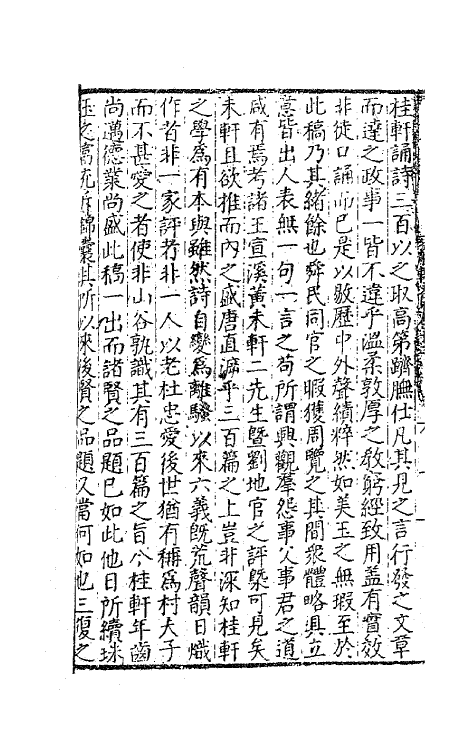 桂軒誦詩三百以之取高第躋膴仕凡其見之言行發之文章
而達之政事一皆不違乎溫柔敦厚之教窮經致用盖有實效
非徒口誦而已是以敭歷中外聲績粹然如美玉之無瑕至於
此稿乃其緒餘也舜民同官之暇獲周覽之其間衆體略具立
意皆出人表無一句一言之苟所謂興觀羣怨事父事君之道
咸有焉考諸王宣溪黄未軒二先生曁劉地官之評槩可見矣
未軒且欲推而內之盛唐直遡乎三百篇之上豈非深知桂軒
之學爲有本與雖然詩自變爲離騷以來六義旣荒聲韻日熾
作者非一家評者非一人以老杜忠愛後世猶有稱爲村夫子
而不甚愛之者使非山谷孰識其有三百篇之旨今桂軒年齒
尚邁德業尚盛此稿一出而諸賢之品題已如此他日所續球
玉之富充斥錦囊其所以來後賢之品題又當何如也三復之